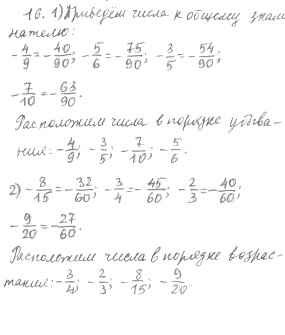 16. 1) Приведём числа к общему знаме
нателю:
-4/9 = -40/90; -5/6 = -75/90; -3/5 = -54/90;
-7/10 = -63/90.
Расположим числа в порядке убыва-
ния: -4/9; -3/5; -7/10; -5/6.
2) -8/15 = -32/60; -3/4 = -45/60; -2/3 = -40/60;
-9/20 = -27/60.
Расположим числа в порядке возрас-
тания: -3/4; -2/3; -8/15; -9/20.